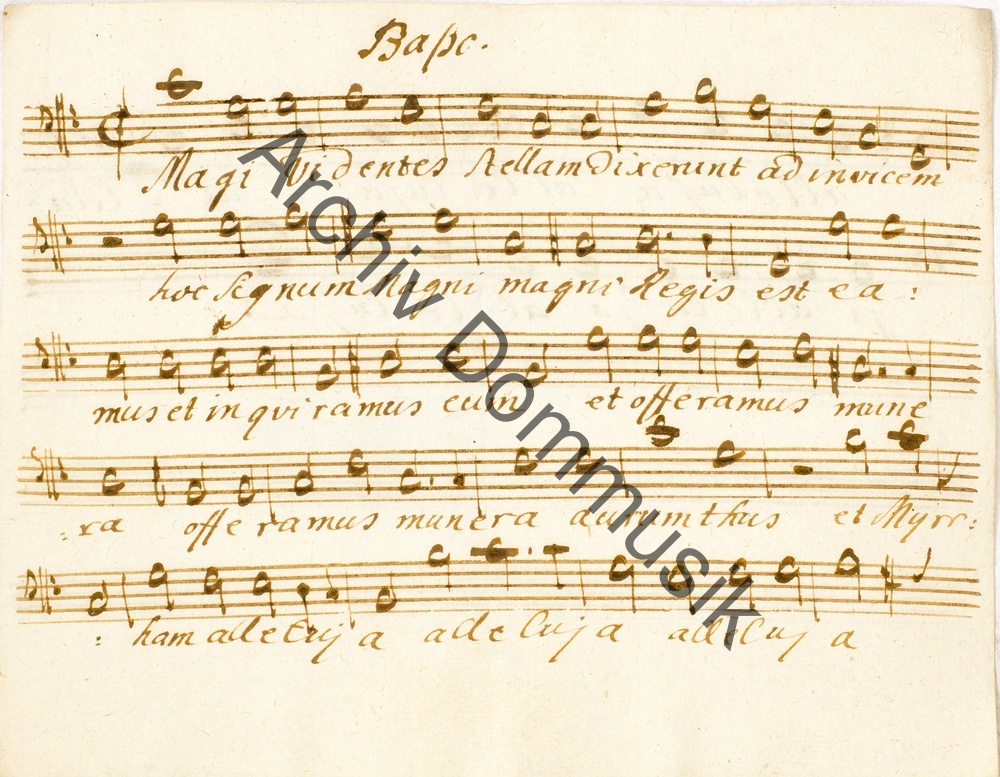 Basso.
Magi videntes stellam dixerunt ad invicem
hoc signum magni magni Regis est ea:
mus et inqviramus eum et offeramus mune
:ra offeramus munera aurum thus et Myrr:
:ham alleluja alleluja alleluja
Archiv Dommusik